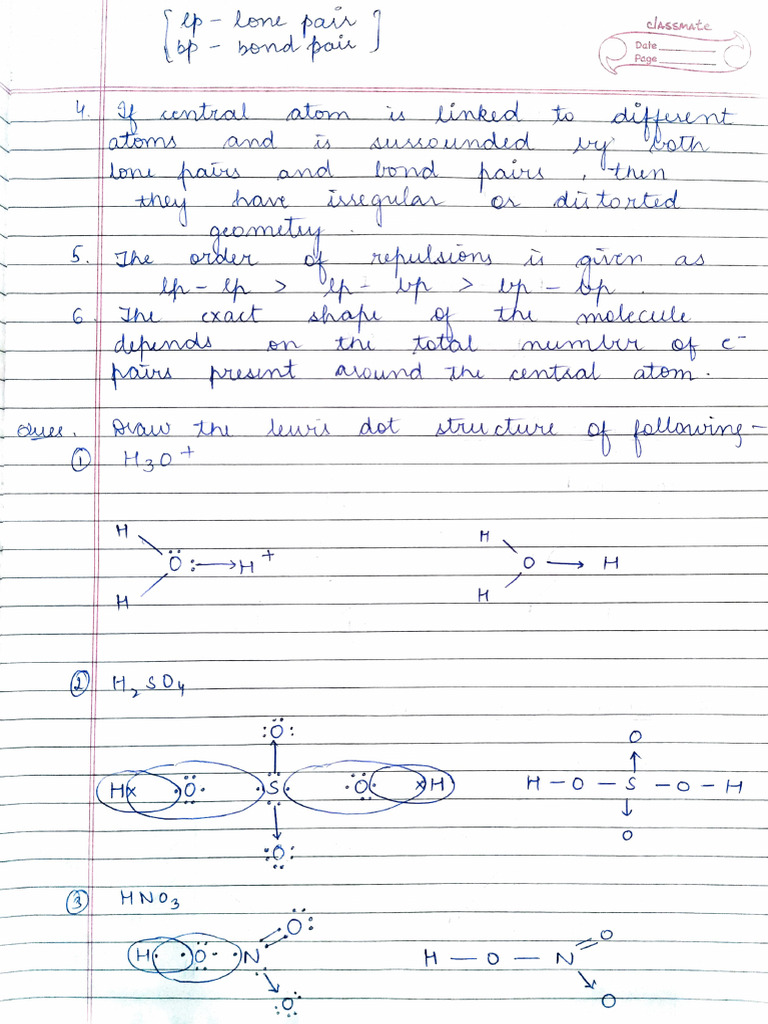 [lp - lone pair
bp - bond pair]
classmate
Date
Page
4. If central atom is linked to different
atoms and is surrounded by both
lone pairs and bond pairs, then
they have irregular or distorted
geometry.
5. The order of repulsions is given as
lp - lp > lp - bp > bp - bp.
6 The exact shape of the molecule
depends on the total number of e⁻
pairs present around the central atom.
Ques. Draw the lewis dot structure of following-
① H₃O⁺
H H
O: → H⁺ O → H
H H
② H₂SO₄
O O
Hx O S O xH H - O - S - O - H
O O
③ HNO₃
O O
H O N H - O - N
O O